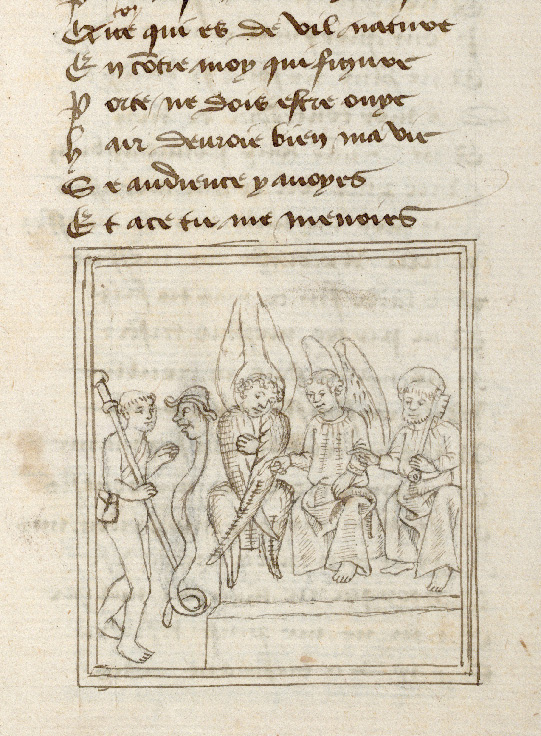 Toy
Exite qui es de vil nature
En cōtre moy qui figure
Porte ne dois estre ouye
hair devroie bien ma vie
Se audience y avoyes
Et a ce tu me menoies